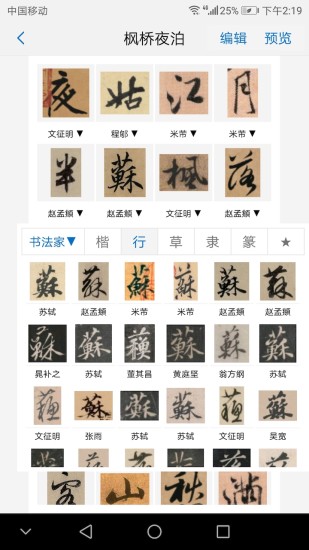 中国移动 4G 25% 下午2:19
枫桥夜泊 编辑 预览
夜 姑 江 月
文征明▼ 程邨▼ 米芾▼ 米芾▼
半 蘇 楓 落
赵孟頫▼ 赵孟頫▼ 文征明▼ 赵孟頫▼
书法家▼ 楷 行 草 隶 篆 ★
蘇 蘇 蘇 蘇 蘇 蘇
苏轼 赵孟頫 米芾 米芾 赵孟頫 赵孟頫
蘇 蘇 蘇 蘇 蘇 蘇
晁补之 苏轼 董其昌 黄庭坚 翁方纲 苏轼
蘇 蘇 蘇 蘇 蘇 蘇
文征明 张雨 苏轼 苏轼 文征明 吴宽
客 山 秋